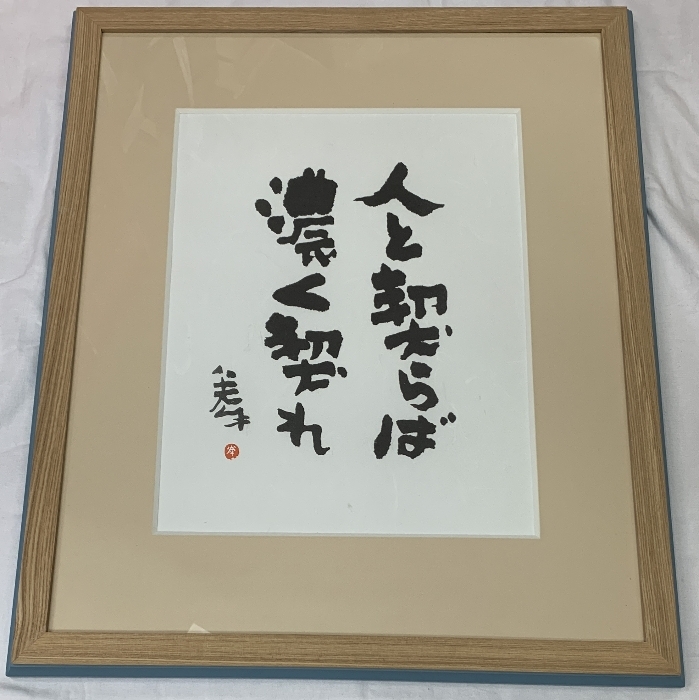 人と契らば
濃く契れ